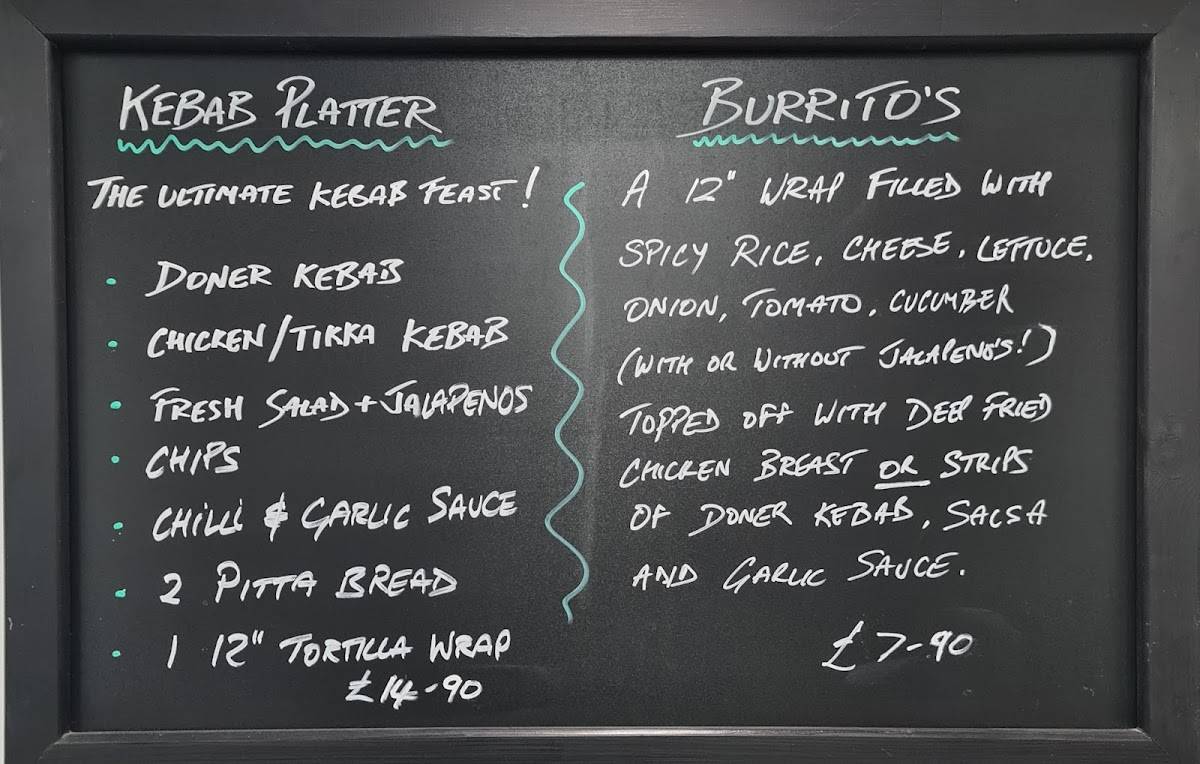 KEBAB PLATTER
THE ULTIMATE KEBAB FEAST!
• DONER KEBAB
• CHICKEN/TIKKA KEBAB
• FRESH SALAD + JALAPENOS
• CHIPS
• CHILLI & GARLIC SAUCE
• 2 PITTA BREAD
• 1 12" TORTILLA WRAP
£14-90
BURRITO'S
A 12" WRAP FILLED WITH
SPICY RICE, CHEESE, LETTUCE,
ONION, TOMATO, CUCUMBER
(WITH OR WITHOUT JALAPENO'S!)
TOPPED OFF WITH DEEP FRIED
CHICKEN BREAST OR STRIPS
OF DONER KEBAB, SALSA
AND GARLIC SAUCE.
£7-90